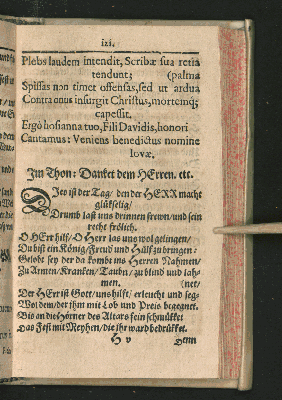 ixi.
Plebs laudem intendit, Scribæ sua retia
tendunt; (palma
Spissas non timet offensas, sed ut ardua
Contra onus insurgit Christus, mortemq;
capessit.
Ergò hosianna tuo, Fili Davidis, honori
Cantamus: Veniens benedictus nomine
Iovæ.
Im Thon: Dancket dem HErren. etc.
DIes ist der Tag / den der HERR macht
glückselig /
Drumb last uns drinnen frewen / und sein
recht frölich.
O HErr hilf / O Herr las uns wol gelingen /
Du bist ein König / Freud und Hülf zu bringen:
Gelobt sey der da kombt ins Herren Nahmen /
Zu Armen / Krancken / Tauben / zu blind und lah-
men. (net /
Der HErr ist Gott / uns hilft / erleucht und seg-
Wol dem / der ihm mit Lob und Preis begegnet.
Bis an die Hörner des Altars sein schmücket
Das Fest mit Meyhen / die ihr ward bedrücket.
H v
Denn